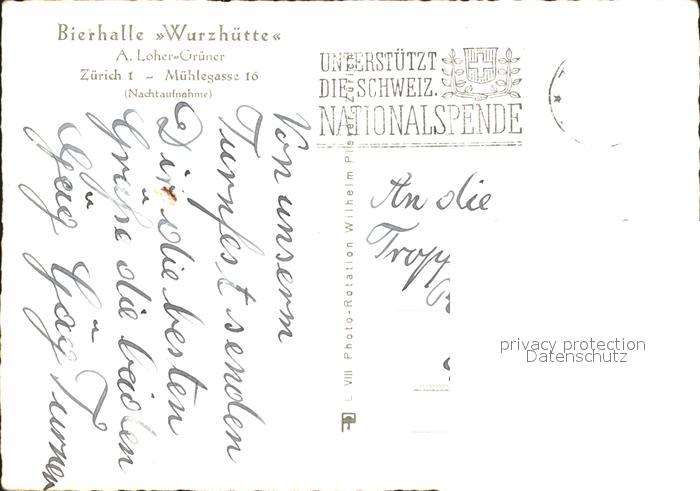 Bierhalle »Wurzhütte«
A. Loher-Grüner
Zürich 1 – Mühlegasse 16
(Nachtaufnahme)
UNTERSTÜTZT
DIE SCHWEIZ.
NATIONALSPENDE
Von unserm
Turnfest senden
Dir die besten
Grüße die beiden
Turner
L VIII Photo-Rotation Wilhelm
An die
Tropp
privacy protection
Datenschutz